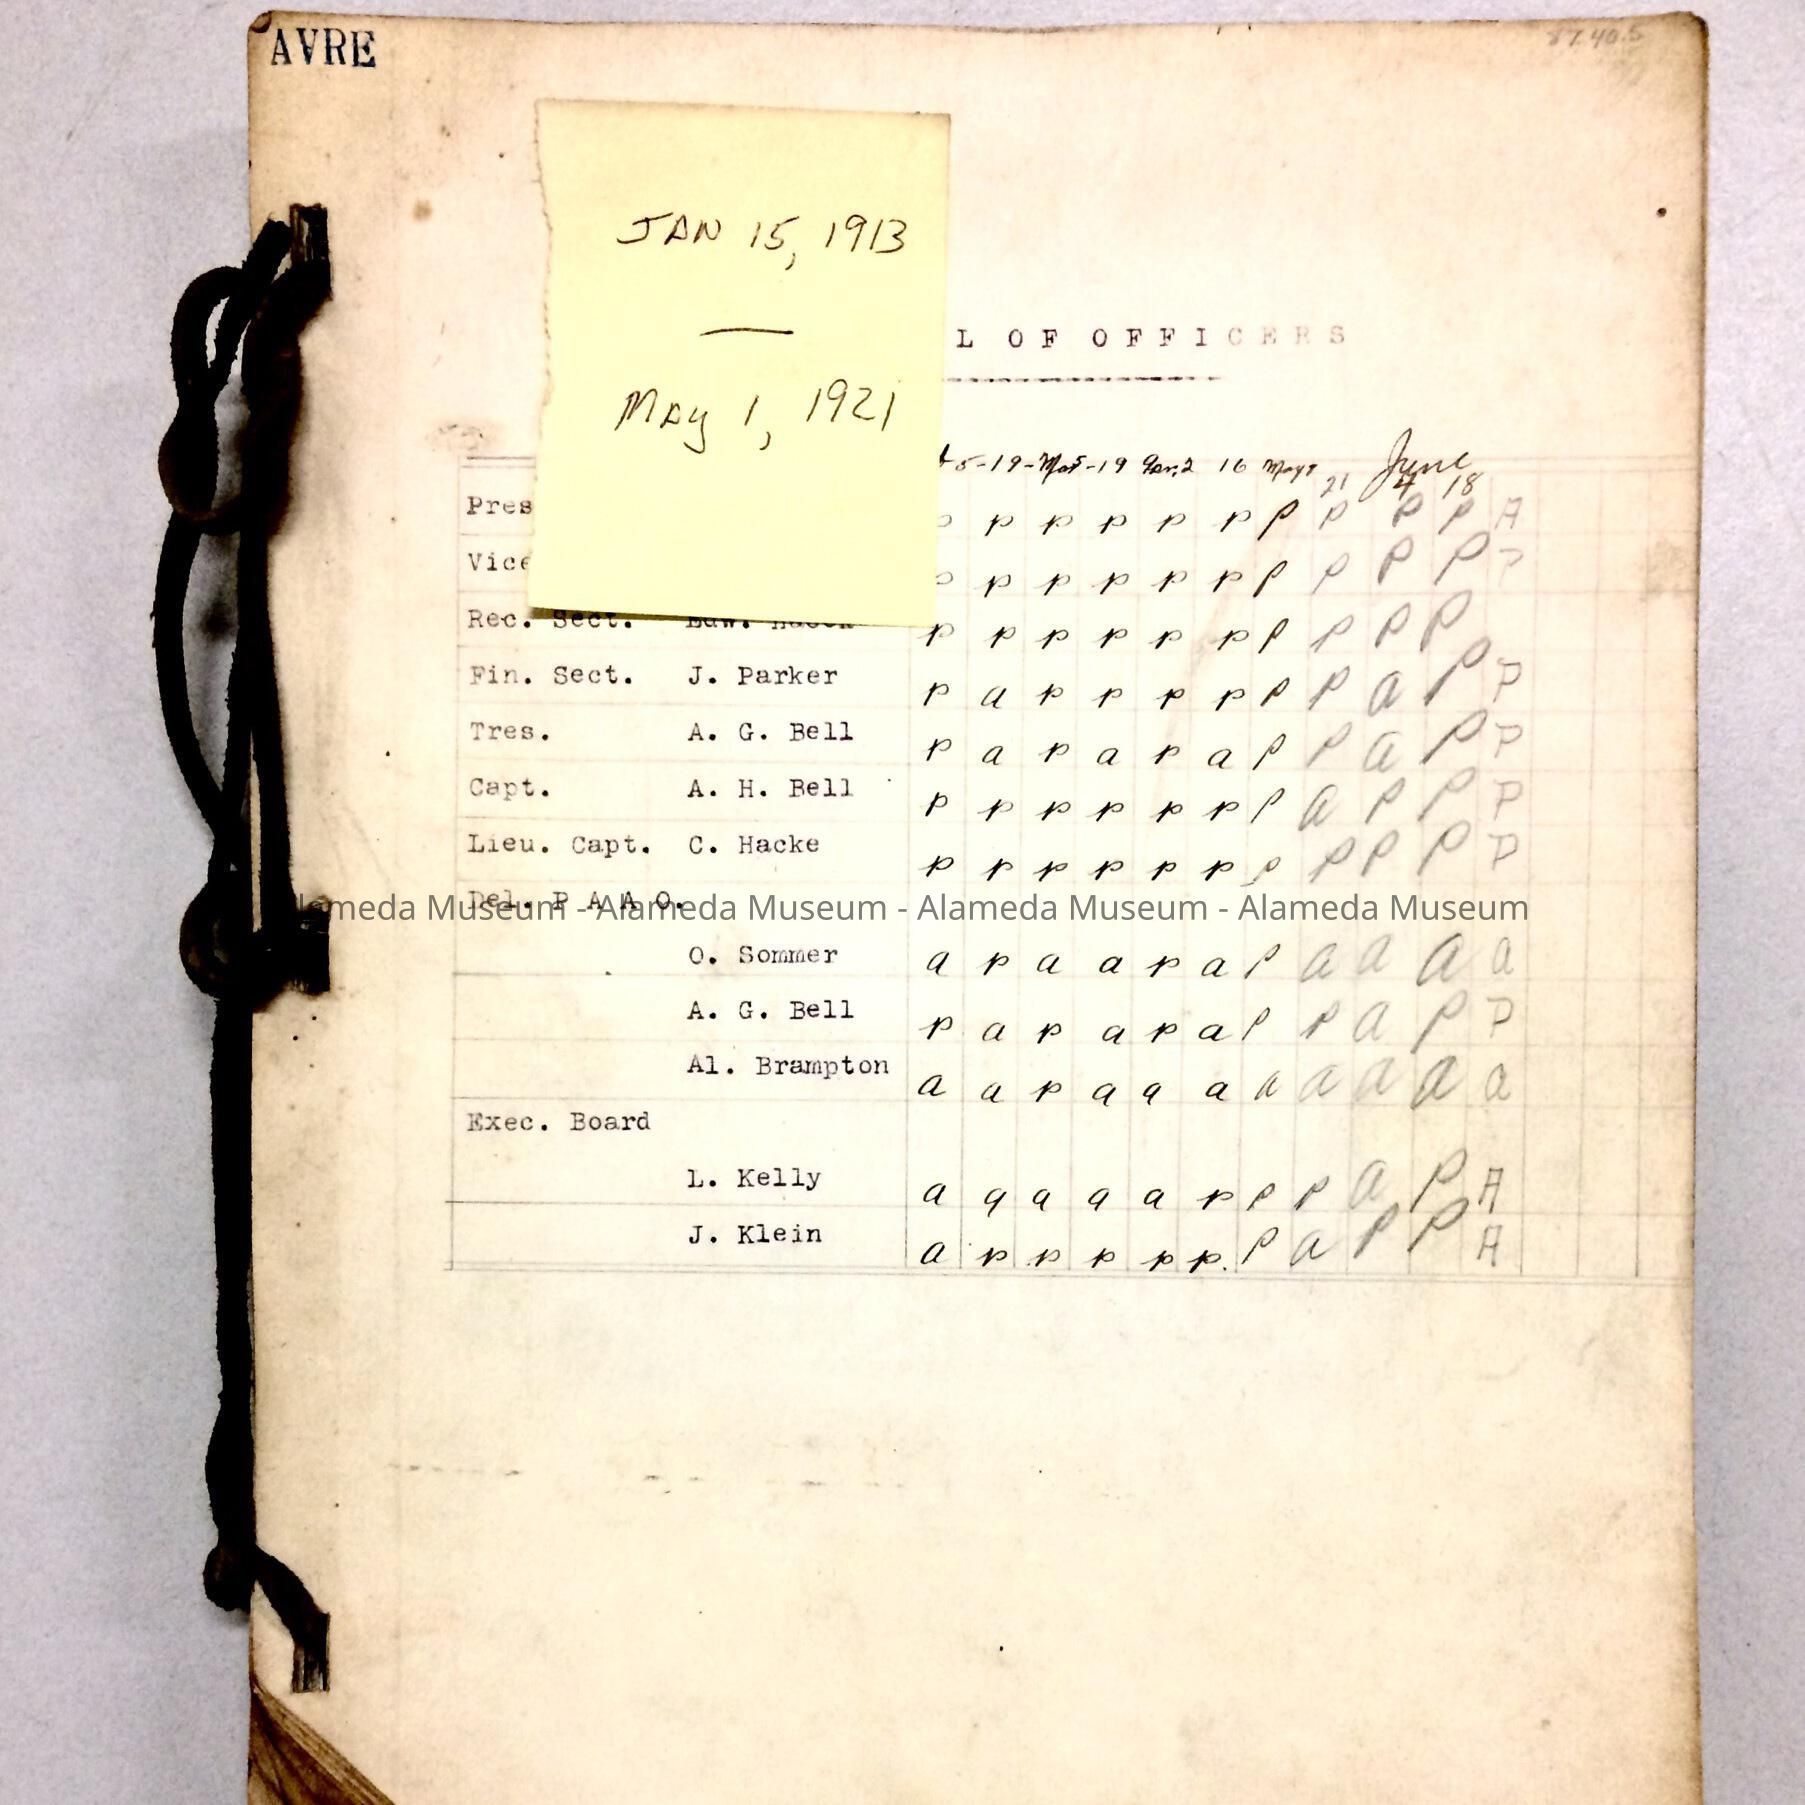 AVRE
87.40.5
JAN 15, 1913
—
MAY 1, 1921
L OF OFFICERS
5-19-Mar5-19 16 May7 21 June 4 18
Pres P P P P P P P P P A
Vice P P P P P P P P P P
Rec. Sect. Edw. P P P P P P P P P P
Fin. Sect. J. Parker P a P P P P P P a P P
Tres. A. G. Bell P a P a P a P P a P P
Capt. A. H. Bell P P P P P P P a P P P
Lieu. Capt. C. Hacke P P P P P P P P P P P
Del. P A A O.
Alameda Museum - Alameda Museum - Alameda Museum - Alameda Museum
O. Sommer a P a a P a P a a a a
A. G. Bell P a P a P a P P a P P
Al. Brampton a a P a a a a a a a a
Exec. Board
L. Kelly a a a a a P P P a P A
J. Klein a P P P P P. P a P P A